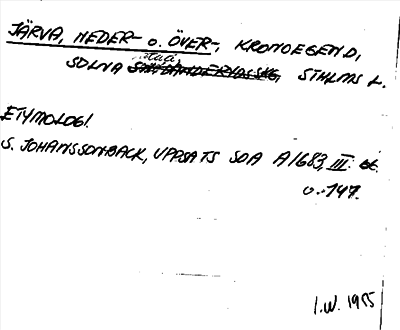 JÄRVA, NEDER- o. ÖVER-, KRONOEGEND,
SOLNA stad, STHLMS L.
ETYMOLOGI.
S. JOHANSSON-BACK, UPPSATS SOA A1683, III:
o. 147.
I.W. 1955